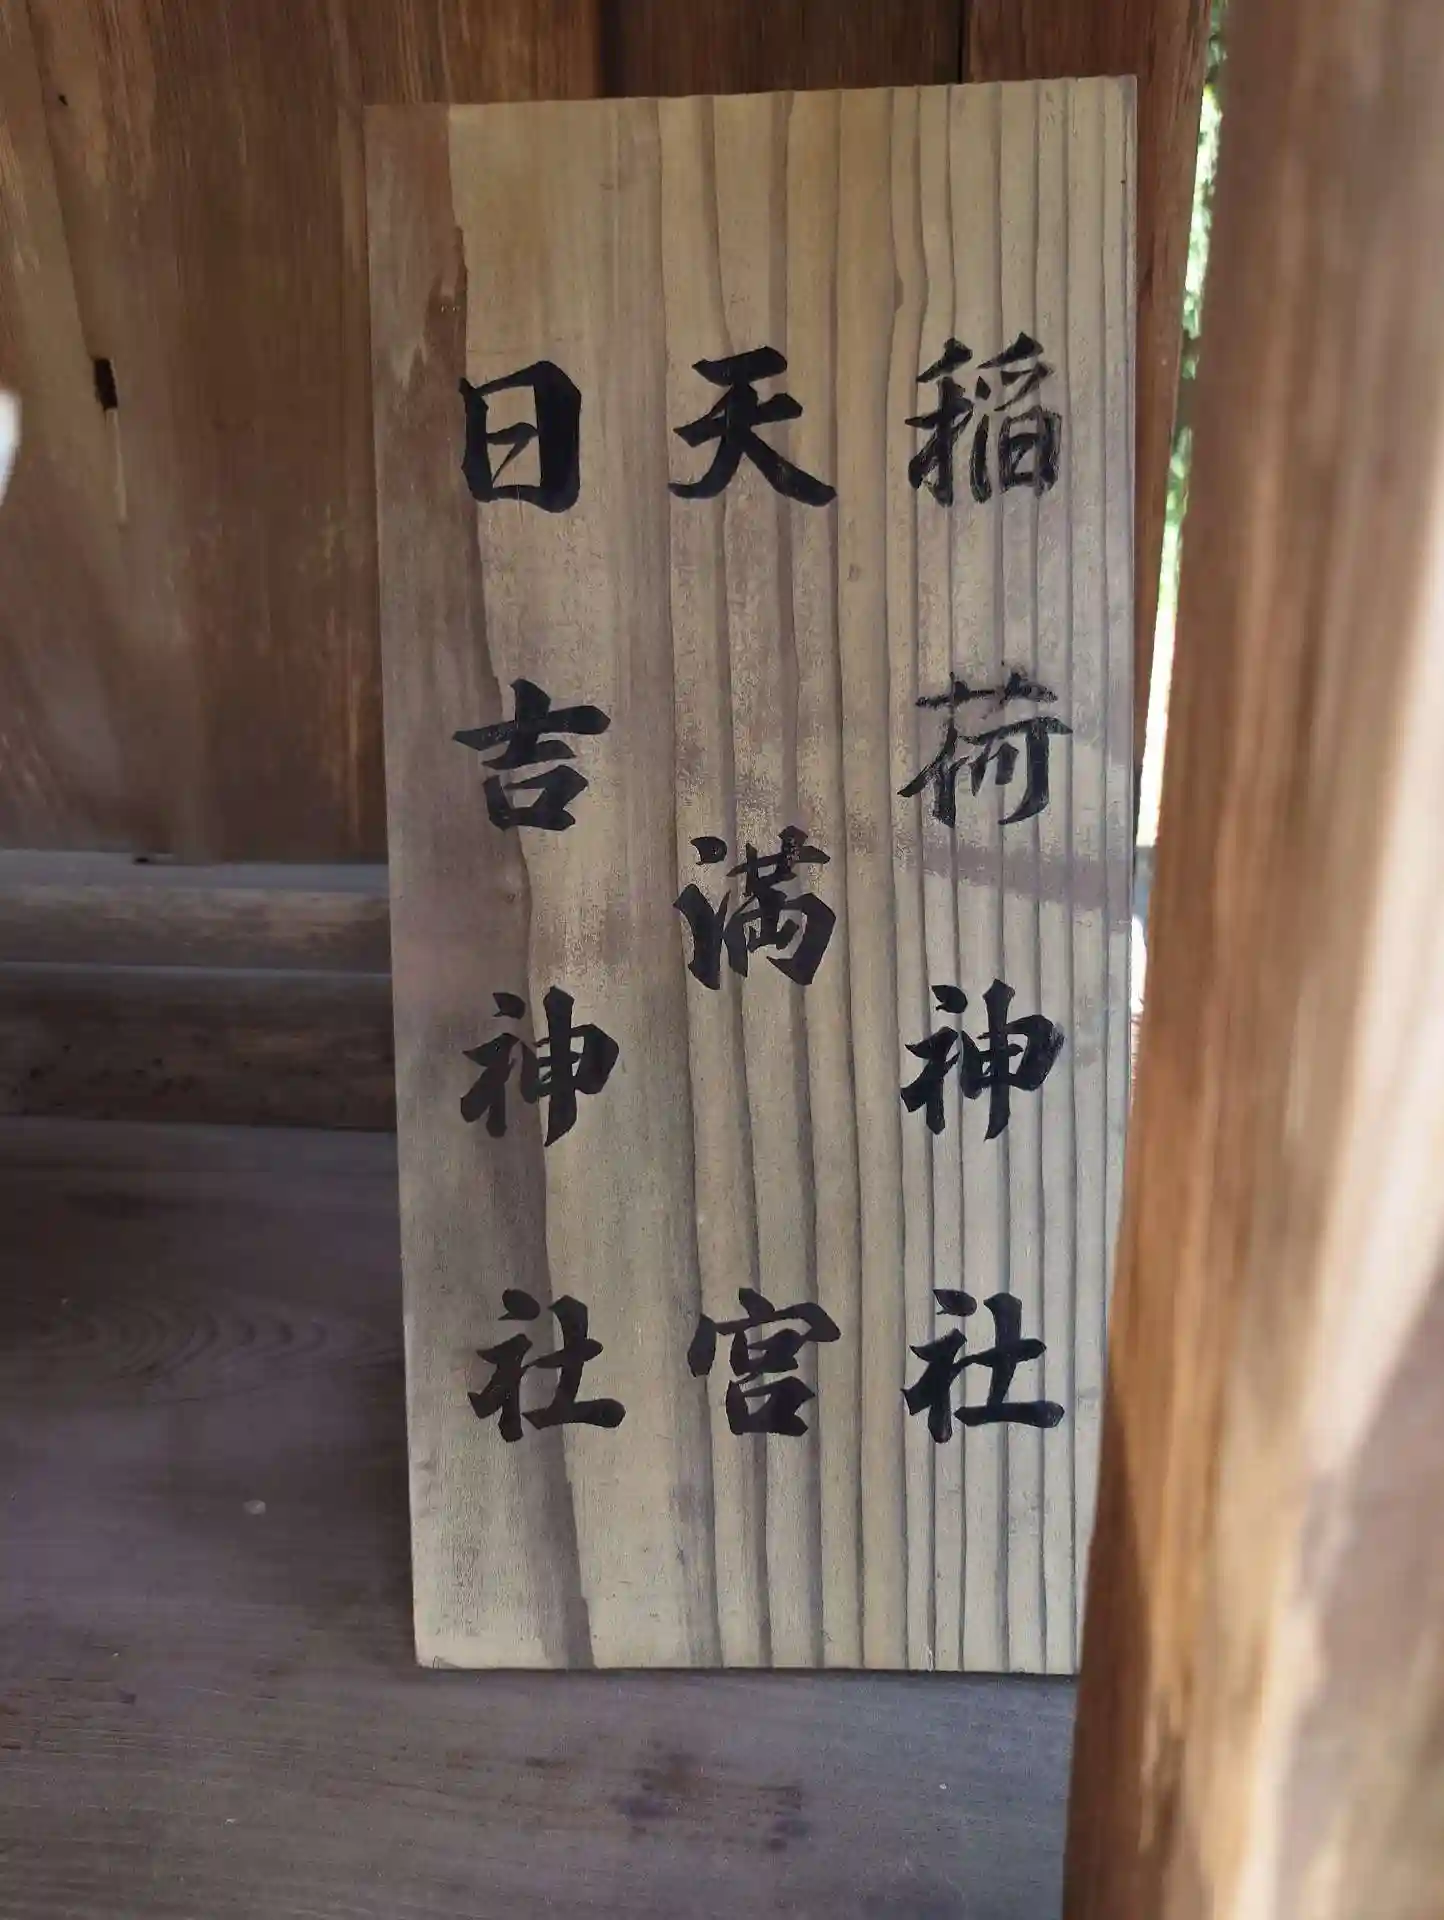 稲荷神社
天満宮
日吉神社